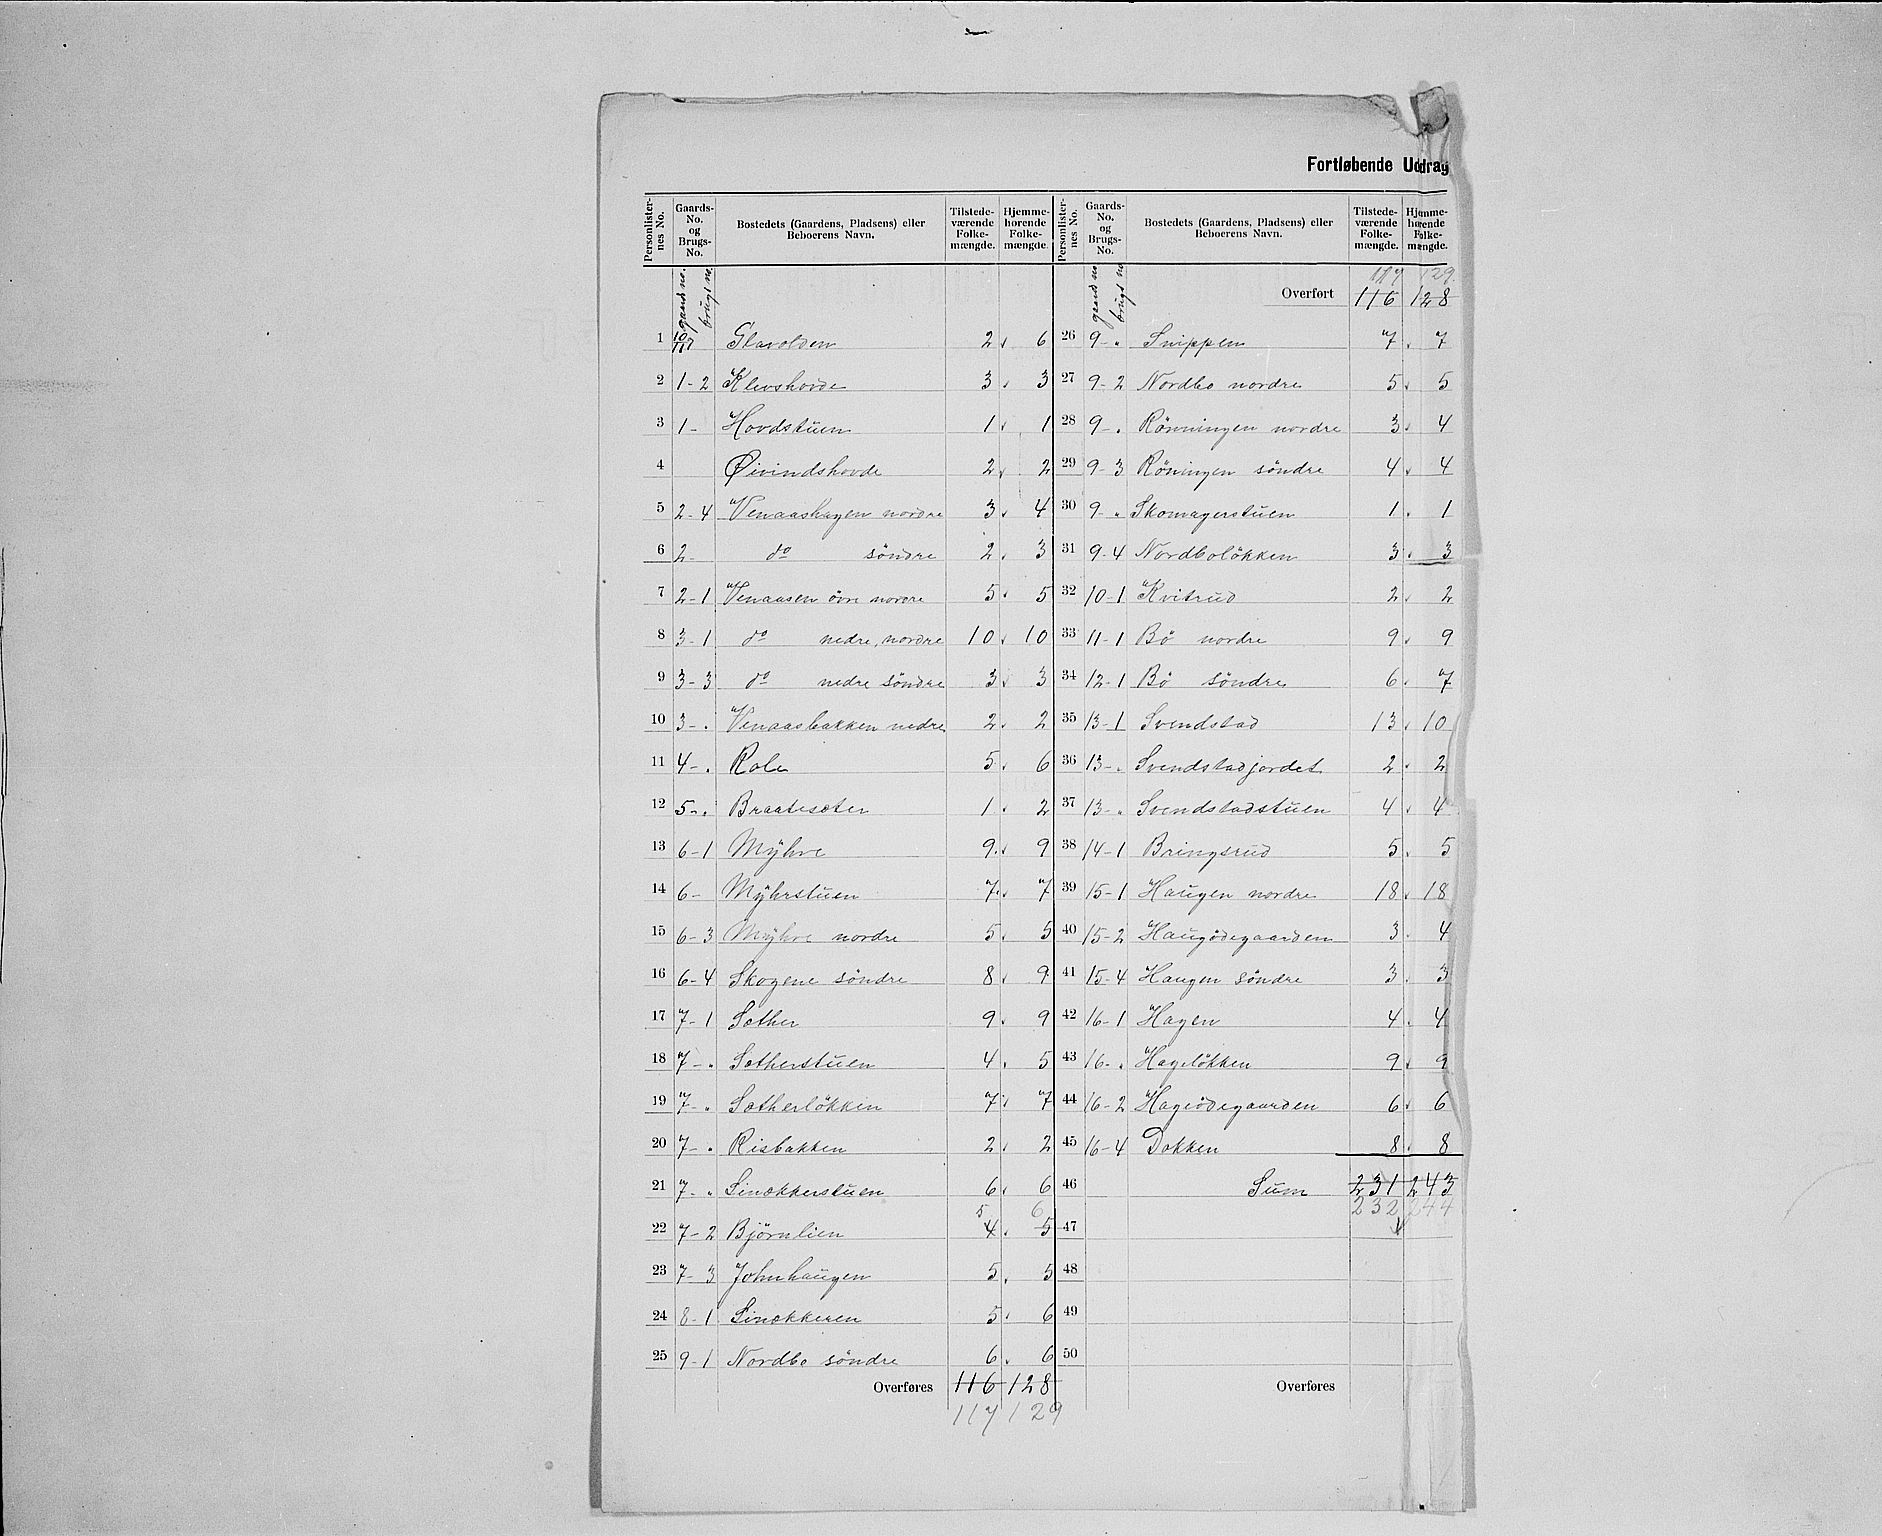 Fortløbende Uddrag
Personlisternes No. | Gaards-No. og Brugs-No. | Bostedets (Gaardens, Pladsens) eller Beboerens Navn. | Tilstedeværende Folkemængde. | Hjemmehørende Folkemængde.
gaards no. brugs no.
1 | 10 117 | Glavolden | 2 | 6
2 | 1-2 | Klevshovde | 3 | 3
3 | 1- | Hovdstuen | 1 | 1
4 | Øivindshovde | 2 | 2
5 | 2-4 | Venaashagen nordre | 3 | 4
6 | 2- | do söndre | 2 | 3
7 | 2-1 | Venaasen övre nordre | 5 | 5
8 | 3-1 | do nedre, nordre | 10 | 10
9 | 3-3 | do nedre söndre | 3 | 3
10 | 3-. | Venaasbakken nedre | 2 | 2
11 | 4-. | Role | 5 | 6
12 | 5-. | Braatesæter | 1 | 2
13 | 6-1 | Myhre | 9 | 9
14 | 6- | Myhrstuen | 7 | 7
15 | 6-3 | Myhre nordre | 5 | 5
16 | 6-4 | Skogene söndre | 8 | 9
17 | 7-1 | Sæther | 9 | 9
18 | 7-" | Sætherstuen | 4 | 5
19 | 7-" | Sætherlökken | 7 | 7
20 | 7-" | Risbakken | 2 | 2
21 | 7-" | Linækkerstuen | 6 | 6
22 | 7-2 | Björnlien | 4 5 | 5 6
23 | 7-3 | Johnhaugen | 5 | 5
24 | 8-1 | Linækkeren | 5 | 6
25 | 9-1 | Nordbo söndre | 6 | 6
Overføres | 116 | 128
117 | 129
Personlisternes No. | Gaards-No. og Brugs-No. | Bostedets (Gaardens, Pladsens) eller Beboerens Navn. | Tilstedeværende Folkemængde. | Hjemmehørende Folkemængde.
gaards no brugs no
117 | 129
Overført | 116 | 128
26 | 9-" | Snippen | 7 | 7
27 | 9-2 | Nordbo nordre | 5 | 5
28 | 9-. | Rönningen nordre | 3 | 4
29 | 9-3 | Röningen söndre | 4 | 4
30 | 9-" | Skomagerstuen | 1 | 1
31 | 9-4 | Nordbolökken | 3 | 3
32 | 10-1 | Kvitrud | 2 | 2
33 | 11-1 | Bö nordre | 9 | 9
34 | 12-1 | Bö söndre | 6 | 7
35 | 13-1 | Svendstad | 13 | 10
36 | 13-" | Svendstadjordet | 2 | 2
37 | 13-" | Svendstadstuen | 4 | 4
38 | 14-1 | Bringsrud | 5 | 5
39 | 15-1 | Haugen nordre | 18 | 18
40 | 15-2 | Haugödegaarden | 3 | 4
41 | 15-4 | Haugen söndre | 3 | 3
42 | 16-1 | Hagen | 4 | 4
43 | 16-. | Hagelökken | 9 | 9
44 | 16-2 | Hageödegaarden | 6 | 6
45 | 16-4 | Dokken | 8 | 8
46 | Sum | 231 | 243
232 | 244
47
48
49
50
Overføres